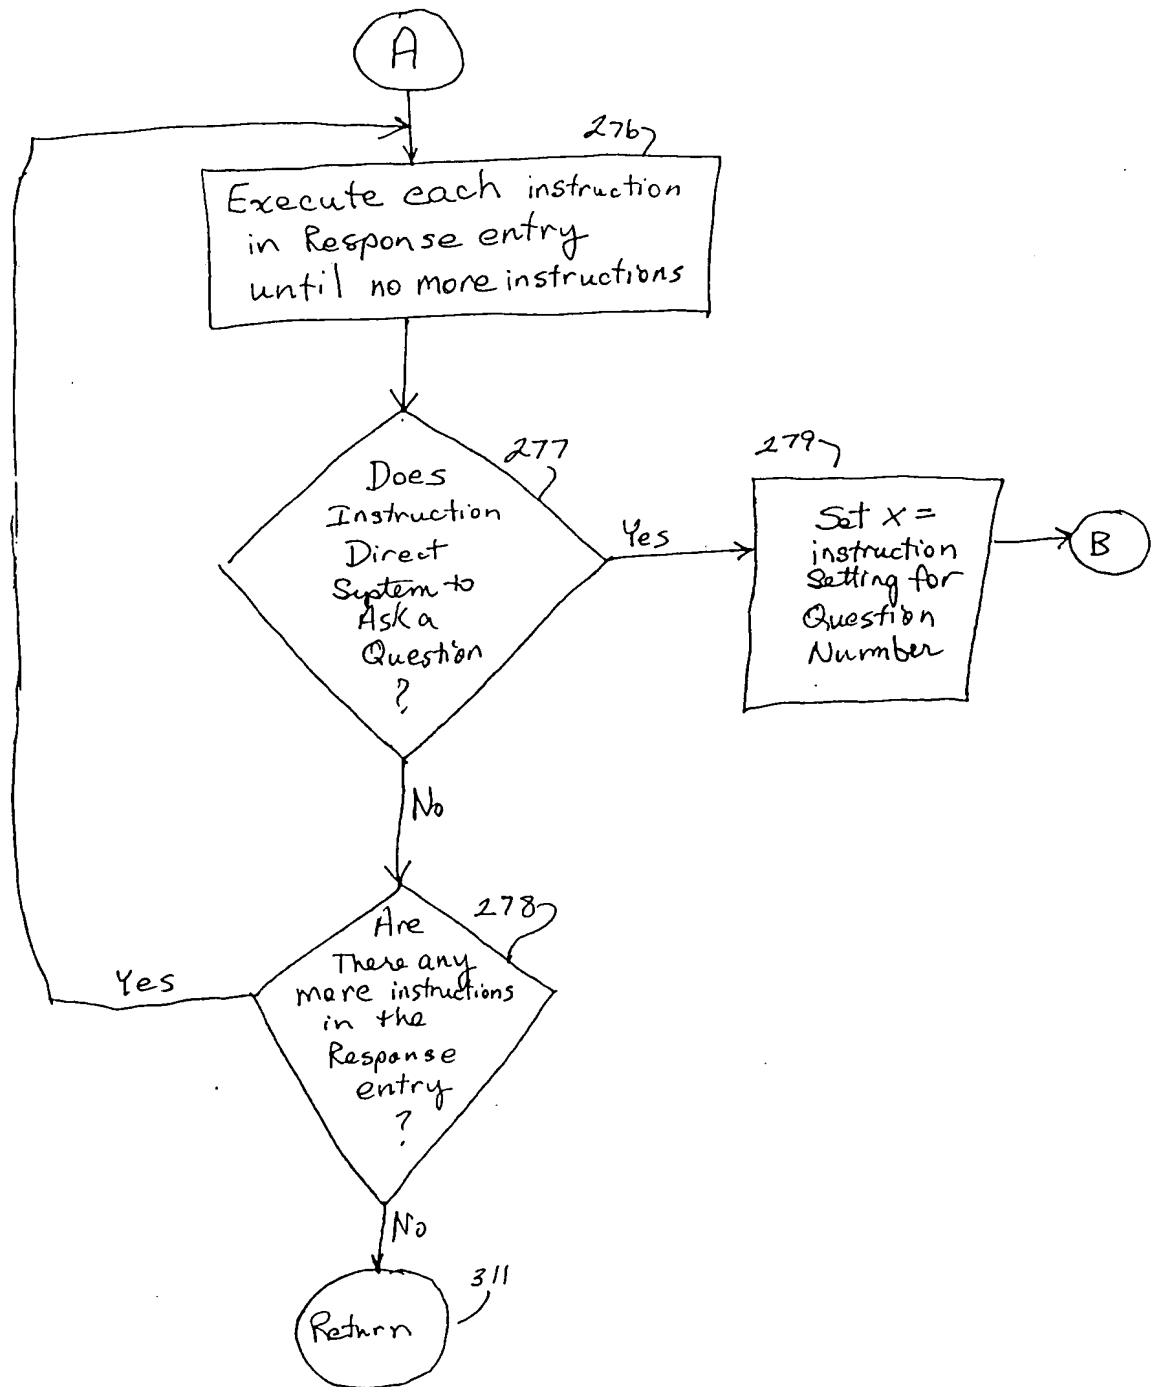 A
276
Execute each instruction
in Response entry
until no more instructions
277
Does
Instruction
Direct
System to
Ask a
Question
?
Yes
279
Set x =
instruction
Setting for
Question
Number
B
No
278
Are
There any
more instructions
in the
Response
entry
?
Yes
No
Return
311